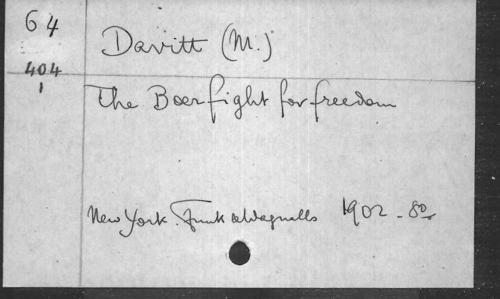 64
Davitt (M.)
404
1
The Boer fight for freedom
New York. Funk & Wagnalls 1902 - 8o